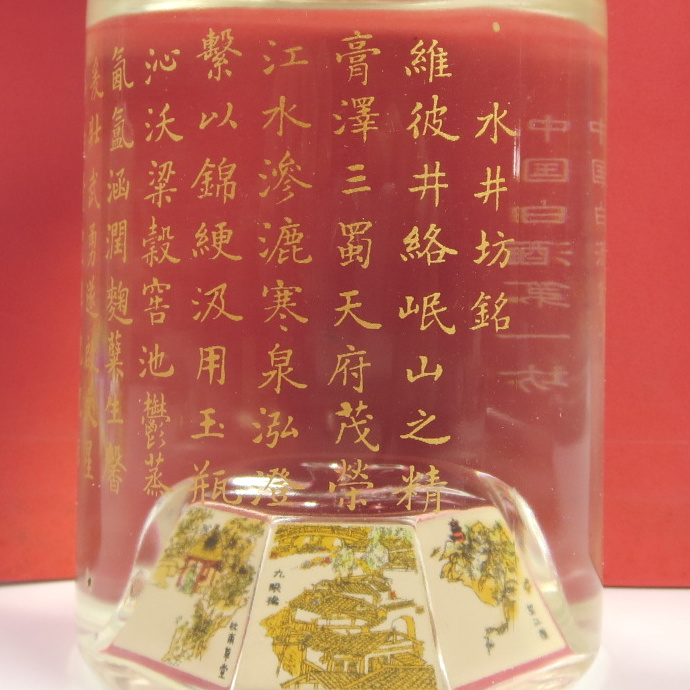 水井坊銘
維彼井絡岷山之精
膏澤三蜀天府茂榮
江水滲漉寒泉泓澄
繫以錦綆汲用玉瓶
沁沃粱穀窖池鬱蒸
氤氳涵潤麴糵生馨
壯武勇
中国白酒第一坊
九眼橋